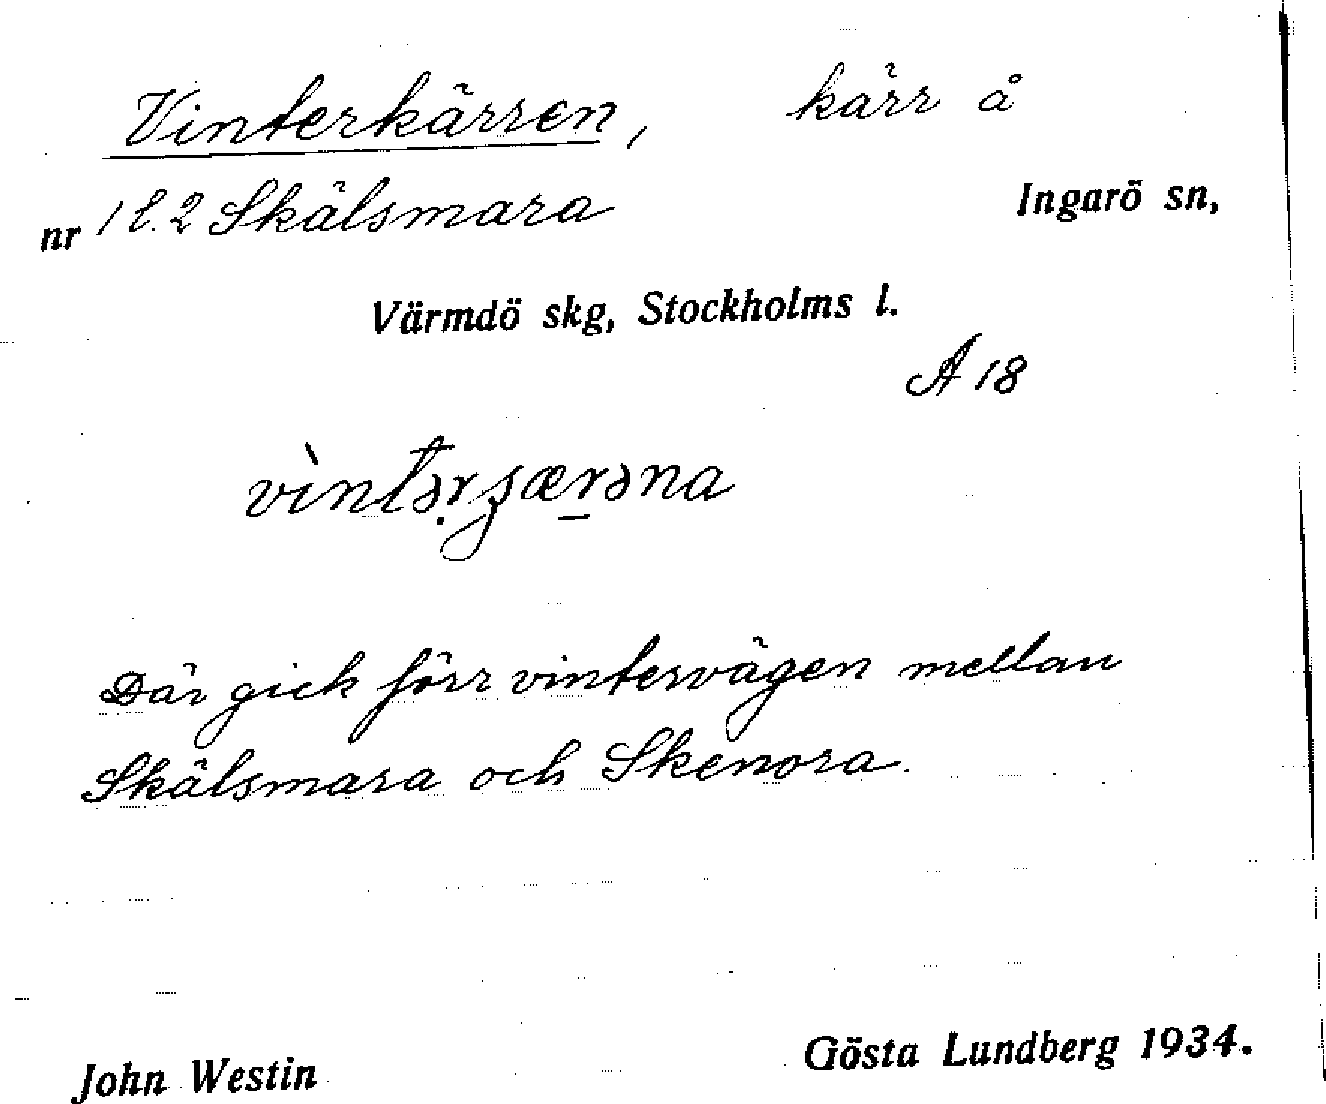 Vinterkärren, kärr å
nr 1 l. 2 Skälsmara Ingarö sn,
Värmdö skg, Stockholms l.
A 18
vintərʒærəna
Där gick förr vintervägen mellan
Skälsmara och Skenora.
John Westin Gösta Lundberg 1934.